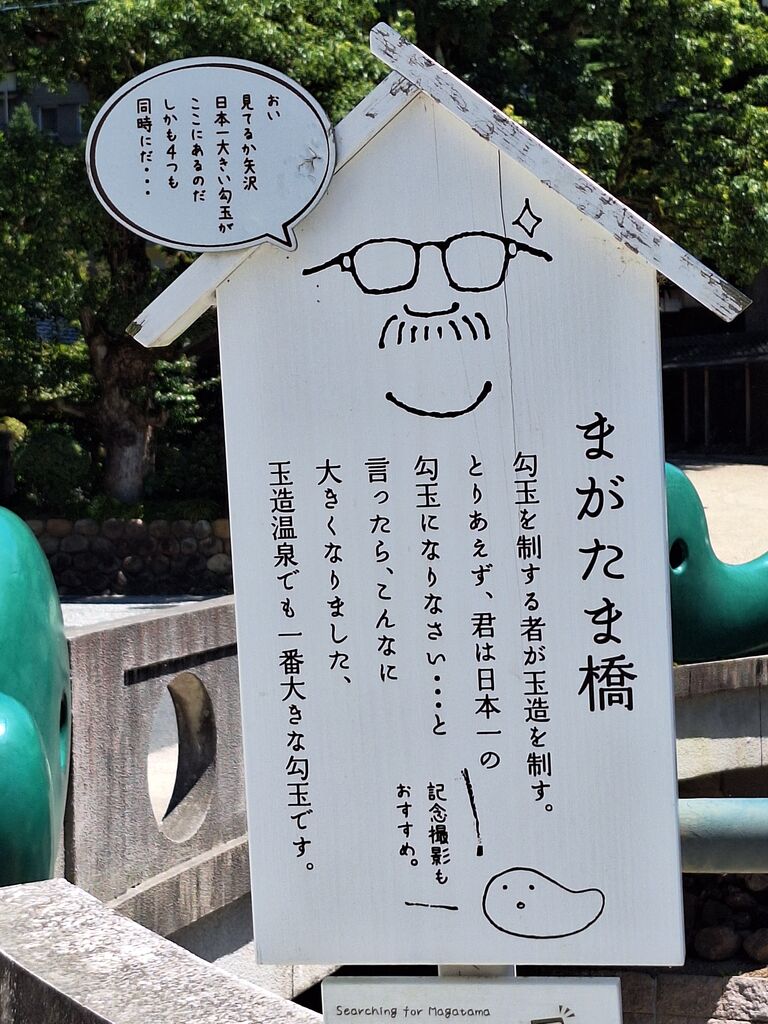 おい
見てるか矢沢
日本一大きい勾玉が
ここにあるのだ
しかも4つも
同時にだ・・・
まがたま橋
勾玉を制する者が玉造を制す。
とりあえず、君は日本一の
勾玉になりなさい・・・と
言ったら、こんなに
大きくなりました、
玉造温泉でも一番大きな勾玉です。
記念撮影も
おすすめ。
Searching for Magatama